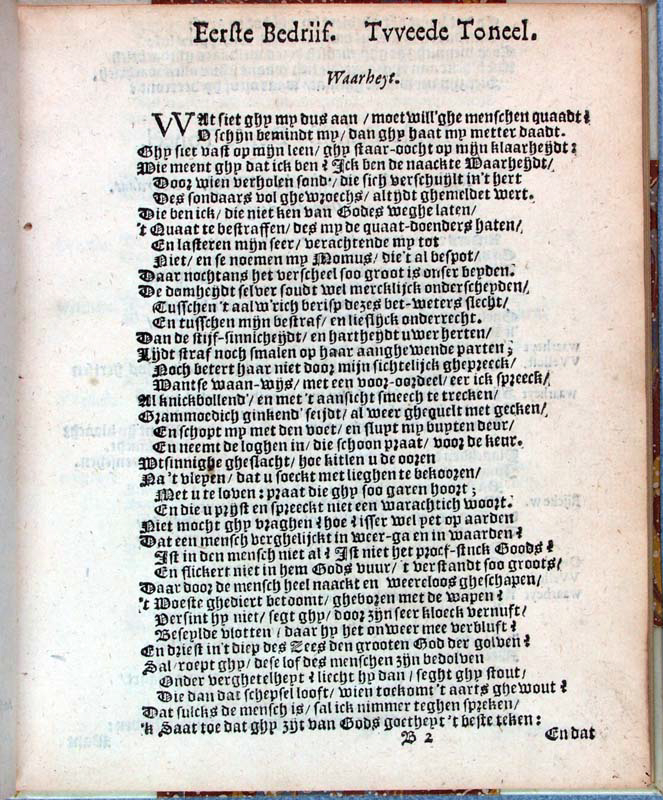 Eerste Bedrijf. Tvveede Toneel.
Waarheyt.
WAt siet ghy my dus aan / moetwill'ghe menschen quaadt?
O schijn bemindt my / dan ghy haat my metter daadt.
Ghy siet vast op mijn leen / ghy staar-oocht op mijn klaarheydt:
Wie meent ghy dat ick ben? Ick ben de naackte Waarheydt /
Door wien verholen sond' / die sich verschuylt in't hert
Des sondaars vol ghewroechs / altijdt ghemeldet wert.
Die ben ick / die niet ken van Godes weghe laten /
't Quaat te bestraffen / des my de quaat-doenders haten /
En lasteren mijn seer / verachtende my tot
Niet / en se noemen my Momus / die't al bespot /
Daar nochtans het verscheel soo groot is onser beyden.
De domheydt selver soudt wel mercklijck onderscheyden /
Tusschen 't aalw'rich berisp dezes bet-weters slecht /
En tusschen mijn bestraf / en lieflijck onderrecht.
Dan de stijf-sinnicheydt / en hartheydt uwer herten /
Lijdt straf noch smalen op haar aanghewende parten;
Noch betert haar niet door mijn sichtelijck ghepreeck /
Want se waan-wijs / met een voor-oordeel / eer ick spreeck /
Al knickbollend' / en met 't aansicht smeech te trecken /
Grammoedich ginkend' seijdt / al weer ghequelt met gecken /
En schopt my met den voet / en sluyt my buyten deur /
En neemt de loghen in / die schoon praat / voor de keur.
Wtsinnighe gheslacht / hoe kitlen u de ooren
Na't vleyen / dat u soeckt met lieghen te bekooren /
Met u te loven: praat die ghy soo garen hoort;
En die u prijst en spreeckt niet een warachtich woort.
Niet mocht ghy vraghen? hoe? isser wel yet op aarden
Dat een mensch verghelijckt in weer-ga en in waarden?
Ist in den mensch niet al? Ist niet het proef-stuck Goods?
En flickert niet in hem Gods vuur / 't verstandt soo groots /
Daar door de mensch heel naackt en weereloos gheschapen /
't Woeste ghediert betoomt / gheboren met de wapen?
Versint hy niet / segt ghy / door zijn seer kloeck vernuft /
Beseylde vlotten / daar hy het onweer mee verbluft?
En driest in't diep des Zees den grooten God der golven?
Sal / roept ghy / dese lof des menschen zijn bedolven
Onder verghetelheyt? liecht hy dan / seght ghy stout /
Die dan dat schepsel looft / wien toekomt 't aarts ghewout?
Dat sulcks de mensch is / sal ick nimmer teghen spreken /
'k Saat toe dat ghy zijt van Gods goetheyt 't beste teken:
B 2
En dat